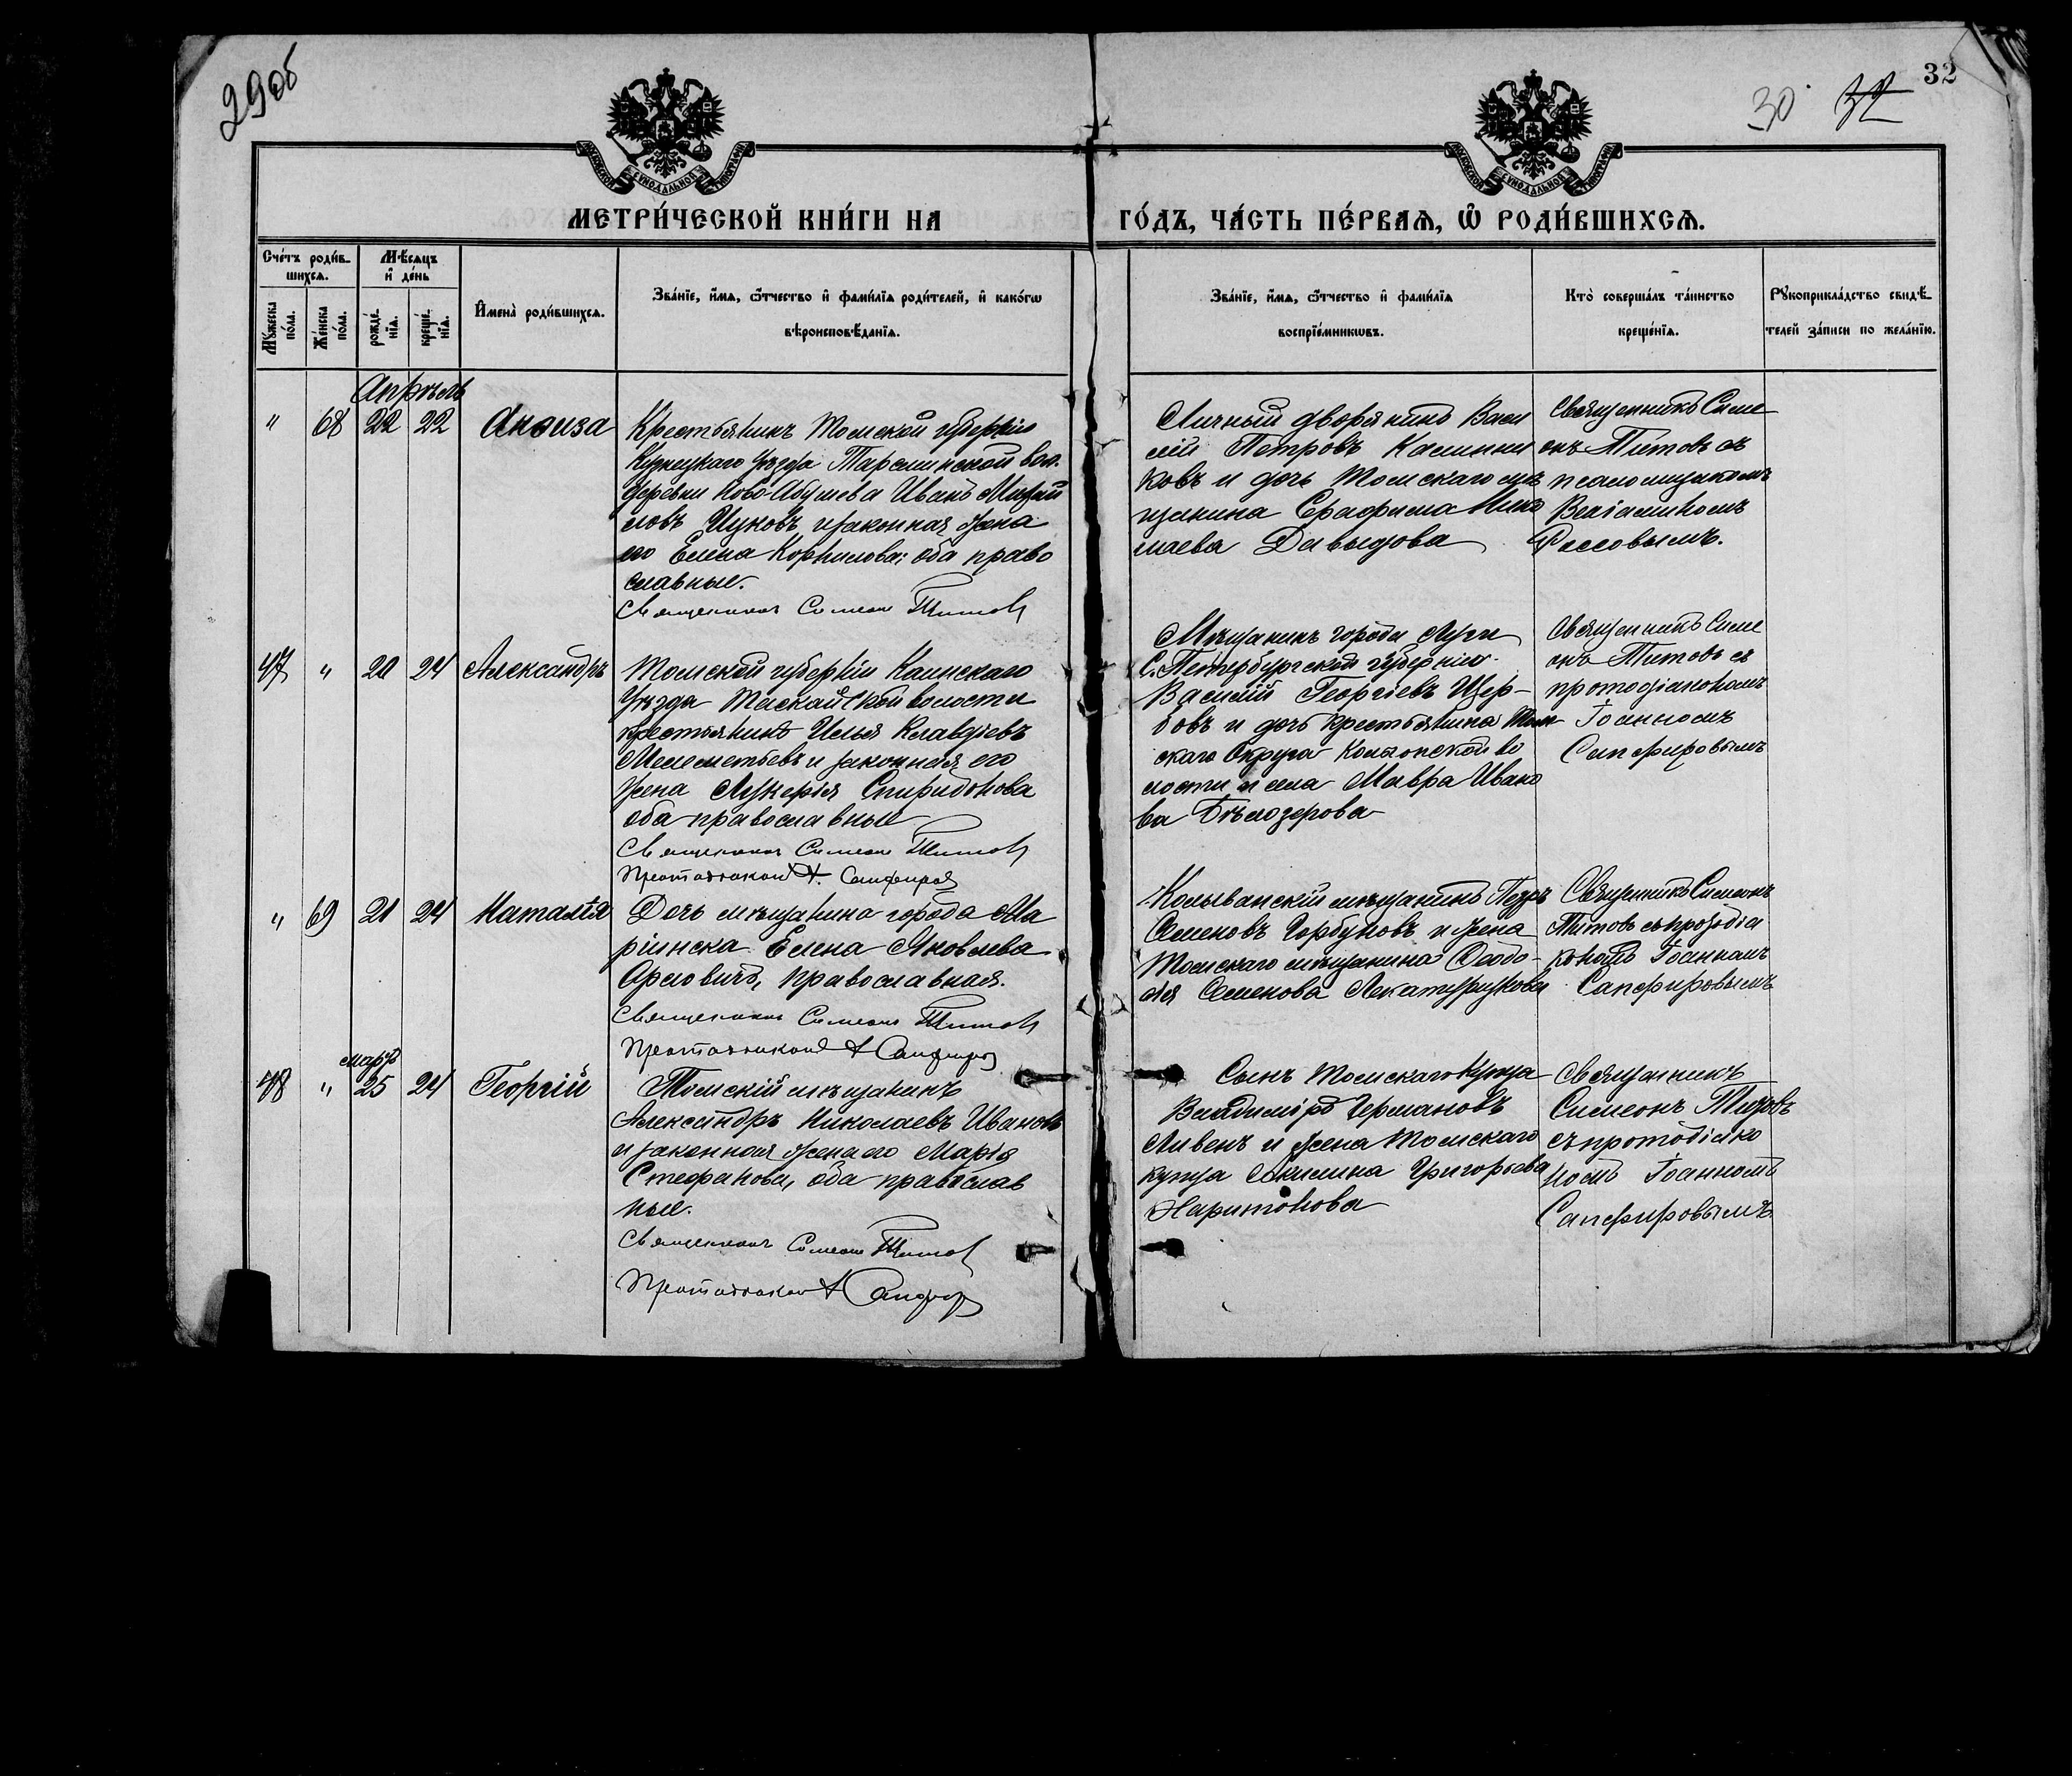 29об
30 32
32
МОСКОВСКОЙ СѴНОДАЛЬНОЙ ТИПОГРАФІИ
МОСКОВСКОЙ СѴНОДАЛЬНОЙ ТИПОГРАФІИ
МЕТРИ́ЧЕСКОЙ КНИ́ГИ НА ГО́ДЪ, ЧА́СТЬ ПЕ́РВАѦ, Ѿ РОДИ́ВШИХСѦ.
Сче́тъ роди́в-
шихсѧ.
Мѣ́сѧцъ
и҆ де́нь
Мꙋ́жеска
по́ла.
Же́нска
по́ла.
рожде́-
нїѧ.
креще́-
нїѧ.
И҆мена̀ роди́вшихсѧ.
Зва́нїе, и҆́мѧ, ѻ҆́тчество и҆ фами́лїѧ роди́телей, и҆ како́гѡ
вѣроисповѣ́данїѧ.
Зва́нїе, и҆́мѧ, ѻ҆́тчество и҆ фами́лїѧ
воспрїе́мникѡвъ.
Кто̀ соверша́лъ та́инство
креще́нїѧ.
Рꙋкоприкла́дство свидѣ́-
телей за́писи по жела́нїю.
Апрѣль
" 68 22 22 Анфиза
Крестьянинъ Томской губерніи
Кузнецкаго уѣзда Тарсминской вол.
деревни Ново-Абушева Иванъ Михай
ловъ Цуковъ и законная жена
его Елена Корнилова; оба право
славные.
Священникъ Симеонъ Титовъ
Личный дворянинъ Васи
лій Петровъ Калинни
ковъ и дочь Томскаго мѣ
щанина Серафима Нико
лаева Давыдова
Священникъ Симе
онъ Титовъ съ
псаломщикомъ
Веніаминомъ
Россовымъ.
47 " 20 24 Александръ
Томской губерніи Каинскаго
Уѣзда Таскайской волости
крестьянинъ Илья Клавдіевъ
Мелентьевъ и законная его
жена Лукерія Спиридонова
оба православные
Священникъ Симеонъ Титовъ
Протодіаконъ І. Сапфировъ
Мѣщанинъ города Луги
С.Петербургской губерніи
Василій Георгіевъ Щер-
бовъ и дочь крестьянина Том
скаго Округа волости
и села Мавра Ивано
ва Бѣлозерова
Священникъ Симе
онъ Титовъ съ
протодіакономъ
Іоанномъ
Сапфировымъ
" 69 21 24 Наталія
Дочь мѣщанина города Ма
ріинска Елена Яковлева
Орловичъ, православная.
Священникъ Симеонъ Титовъ
Протодіаконъ І Сапфировъ
Колыванскій мѣщанинъ Петръ
Семеновъ Горбуновъ и жена
Томскаго мѣщанина Ѳеодо-
сія Семенова
Священникъ Симеонъ
Титовъ съ протодіа
кономъ Іоанномъ
Сапфировымъ
мартъ
48 " 25 24 Георгій
Томскій мѣщанинъ
Александръ Николаевъ Ивановъ
и законная жена его Марія
Стефанова, оба православ
ные.
Священникъ Симеонъ Титовъ
Протодіаконъ І Сапфировъ
Сынъ Томскаго Купца
Владиміръ Германовъ
Ливенъ и жена Томскаго
купца Акилина Григорьева
Харитонова
Священникъ
Симеонъ Титовъ
съ протодіако
номъ Іоанномъ
Сапфировымъ.